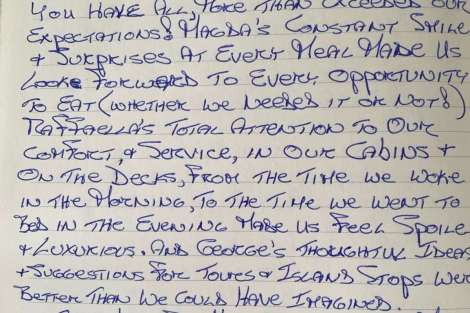 You have all, more than exceeded our
expectations! Magda's constant smile
& surprises at every meal made us
look forward to every opportunity
to eat (whether we needed it or not!)
Raffaella's total attention to our
comfort, & service, in our cabins &
on the decks, from the time we woke
in the morning, to the time we went to
bed in the evening made us feel spoile
& luxurious. And George's thoughtful ideas
& suggestions for tours & island stops wer
better than we could have imagined.